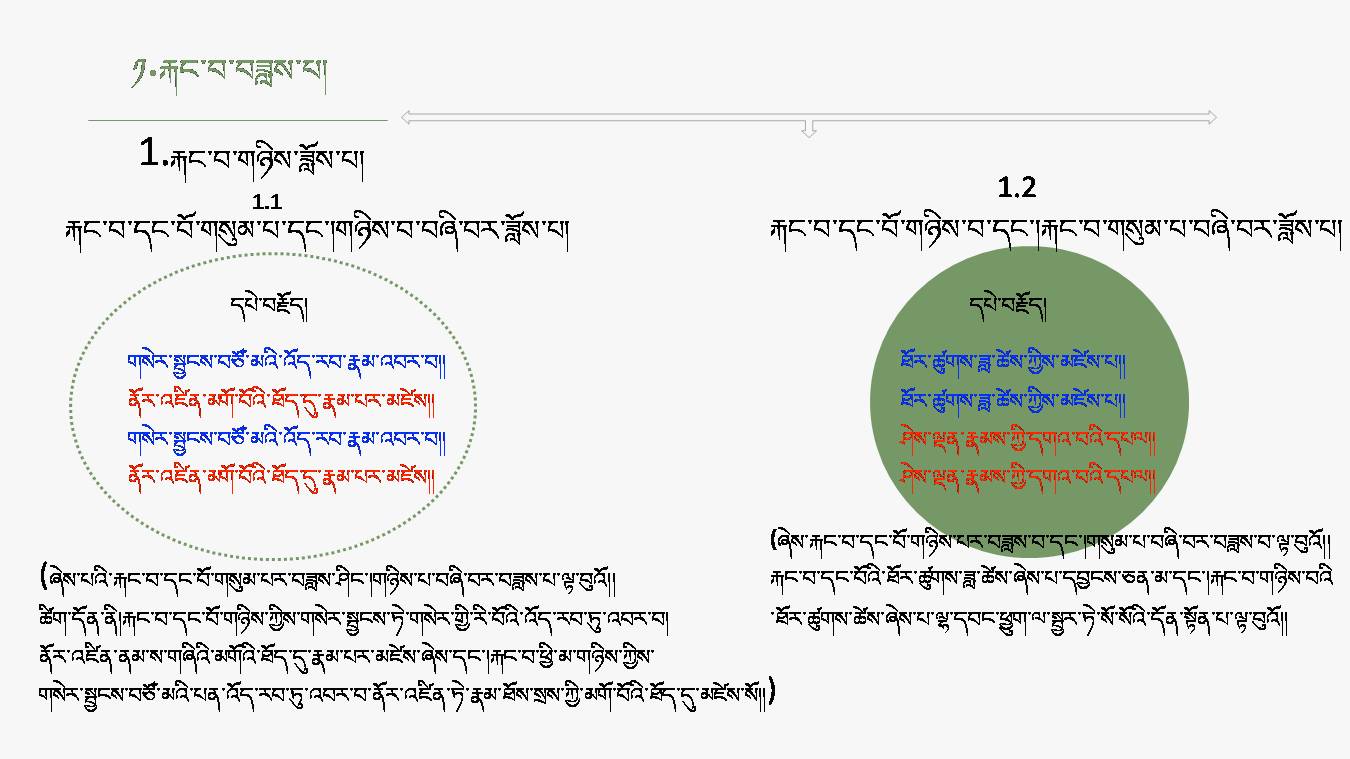 ༡.རྐང་བ་བཟླས་པ།
1.རྐང་བ་གཉིས་ཟློས་པ།
1.1
རྐང་བ་དང་པོ་གསུམ་པ་དང་།གཉིས་བ་བཞི་བར་ཟློས་པ།
དཔེ་བརྗོད།
གསེར་སྦྱངས་བཙོ་མའི་འོད་རབ་རྣམ་འབར་བ།།
ནོར་འཛིན་མགོ་བོའི་ཐོད་དུ་རྣམ་པར་མཛེས།།
གསེར་སྦྱངས་བཙོ་མའི་འོད་རབ་རྣམ་འབར་བ།།
ནོར་འཛིན་མགོ་བོའི་ཐོད་དུ་རྣམ་པར་མཛེས།།
(ཞེས་པའི་རྐང་བ་དང་པོ་གསུམ་པར་བཟླས་ཤིང་།གཉིས་པ་བཞི་བར་བཟླས་པ་ལྟ་བུའོ།།
ཚིག་དོན་ནི།རྐང་བ་དང་པོ་གཉིས་ཀྱིས་གསེར་སྦྱངས་ཏེ་གསེར་གྱི་རི་བོའི་འོད་རབ་ཏུ་འབར་བ།
ནོར་འཛིན་ནམ་ས་གཞིའི་མགོའི་ཐོད་དུ་རྣམ་པར་མཛེས་ཞེས་དང་།རྐང་བ་ཕྱི་མ་གཉིས་ཀྱིས་
གསེར་སྦྱངས་བཙོ་མའི་པན་འོད་རབ་ཏུ་འབར་བ་ནོར་འཛིན་ཏེ་རྣམ་ཐོས་སྲས་ཀྱི་མགོ་བོའི་ཐོད་དུ་མཛེས་སོ།།)
1.2
རྐང་བ་དང་པོ་གཉིས་བ་དང་།རྐང་བ་གསུམ་པ་བཞི་བར་ཟློས་པ།
དཔེ་བརྗོད།
ཐོར་ཚུགས་ཟླ་ཚེས་ཀྱིས་མཛེས་པ།།
ཐོར་ཚུགས་ཟླ་ཚེས་ཀྱིས་མཛེས་པ།།
ཤེས་ལྡན་རྣམས་ཀྱི་དགའ་བའི་དཔལ།།
ཤེས་ལྡན་རྣམས་ཀྱི་དགའ་བའི་དཔལ།།
(ཞེས་རྐང་བ་དང་པོ་གཉིས་པར་བཟླས་བ་དང་།གསུམ་པ་བཞི་བར་བཟླས་བ་ལྟ་བུའོ།།
རྐང་བ་དང་པོའི་ཐོར་ཚུགས་ཟླ་ཚེས་ཞེས་པ་དབྱངས་ཅན་མ་དང་།རྐང་བ་གཉིས་བའི
་ཐོར་ཚུགས་ཚེས་ཞེས་པ་ལྷ་དབང་ཕྱུག་ལ་སྦྱར་ཏེ་སོ་སོའི་དོན་སྟོན་པ་ལྟ་བུའོ།།